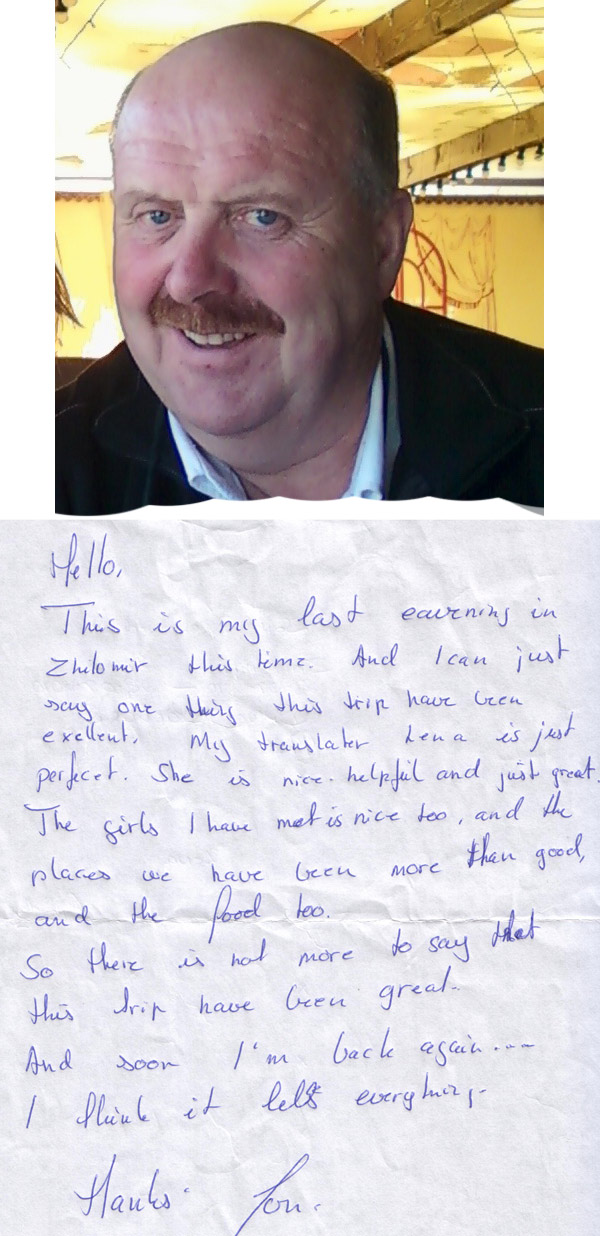 Hello,
This is my last eaverning in
Zhitomir this time. And I can just
say one thing this trip have been
exellent. My translater Lena is just
perfect. She is nice. helpful and just great.
The girls I have met is nice too, and the
places we have been more than good,
and the food too.
So there is not more to say that
this trip have been great.
And soon I'm back again....
I think it tells everything.
Hanks. Jon.